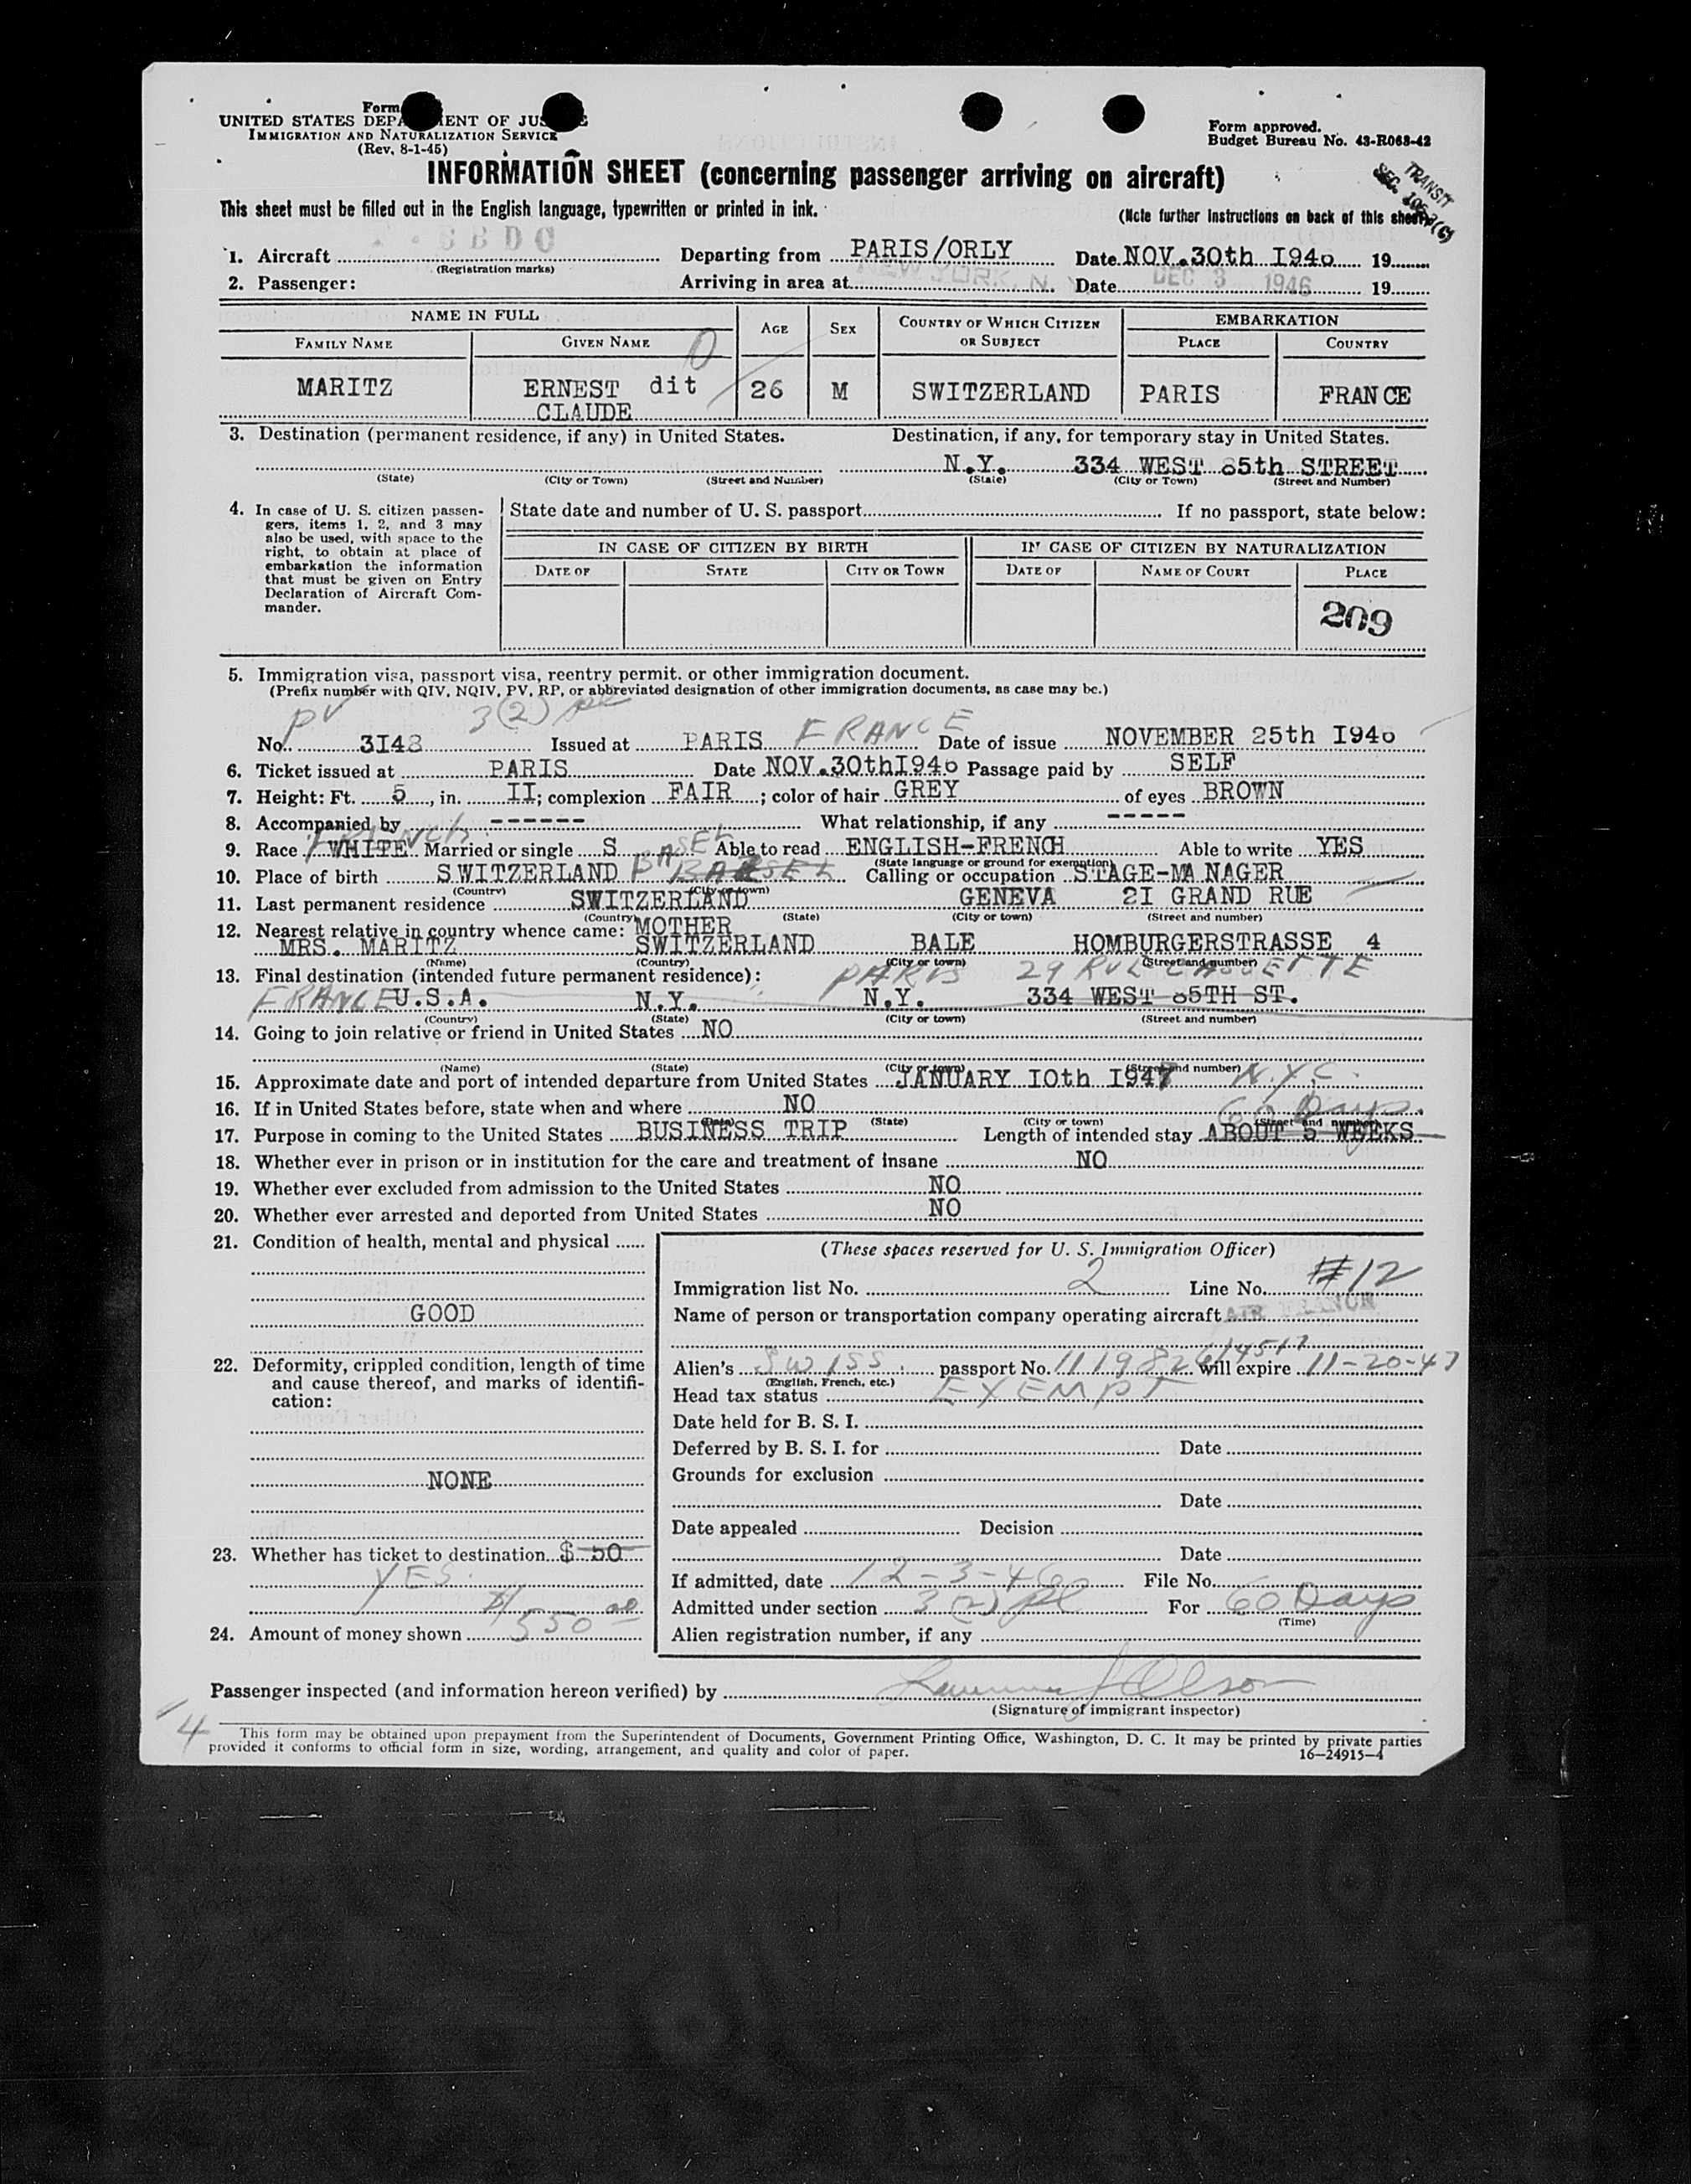 Form
UNITED STATES DEPA ENT OF JUS E
IMMIGRATION AND NATURALIZATION SERVICE
(Rev. 8-1-45)
Form approved.
Budget Bureau No. 43-R068-42
INFORMATION SHEET (concerning passenger arriving on aircraft)
TRANSIT
SEC.
This sheet must be filled out in the English language, typewritten or printed in ink.
(Note further Instructions on back of this sheet)
1. Aircraft Departing from PARIS/ORLY Date NOV.30th I946 19
(Registration marks)
2. Passenger: Arriving in area at NEW YORK, N. Y. Date DEC 3 1946 19
NAME IN FULL AGE SEX COUNTRY OF WHICH CITIZEN OR SUBJECT EMBARKATION
FAMILY NAME GIVEN NAME PLACE COUNTRY
MARITZ ERNEST dit 26 M SWITZERLAND PARIS FRANCE
CLAUDE
3. Destination (permanent residence, if any) in United States. Destination, if any, for temporary stay in United States.
N.Y. 334 WEST 85th STREET
(State) (City or Town) (Street and Number) (State) (City or Town) (Street and Number)
4. In case of U. S. citizen passen-
gers, items 1, 2, and 3 may
also be used, with space to the
right, to obtain at place of
embarkation the information
that must be given on Entry
Declaration of Aircraft Com-
mander.
State date and number of U. S. passport If no passport, state below:
IN CASE OF CITIZEN BY BIRTH IN CASE OF CITIZEN BY NATURALIZATION
DATE OF STATE CITY OR TOWN DATE OF NAME OF COURT PLACE
209
5. Immigration visa, passport visa, reentry permit, or other immigration document.
(Prefix number with QIV, NQIV, PV, RP, or abbreviated designation of other immigration documents, as case may be.)
PV 3(2) FRANCE
No. 3I48 Issued at PARIS Date of issue NOVEMBER 25th I946
6. Ticket issued at PARIS Date NOV.30thI946 Passage paid by SELF
7. Height: Ft. 5, in. II; complexion FAIR; color of hair GREY of eyes BROWN
8. Accompanied by ------ What relationship, if any -----
FRENCH BASEL
9. Race WHITE Married or single S Able to read ENGLISH-FRENCH Able to write YES
(State language or ground for exemption)
10. Place of birth SWITZERLAND Calling or occupation STAGE-MANAGER
(Country) (City or town)
11. Last permanent residence SWITZERLAND GENEVA 2I GRAND RUE
(Country) (State) (City or town) (Street and number)
12. Nearest relative in country whence came: MOTHER
MRS. MARITZ SWITZERLAND BALE HOMBURGERSTRASSE 4
(Name) (Country) (City or town) (Street and number)
13. Final destination (intended future permanent residence): PARIS 29 RUE CASSETTE
FRANCE U.S.A. N.Y. N.Y. 334 WEST 85TH ST.
(Country) (State) (City or town) (Street and number)
14. Going to join relative or friend in United States NO
(Name) (State) (City or town) (Street and number)
15. Approximate date and port of intended departure from United States JANUARY I0th I947 N.Y.C.
16. If in United States before, state when and where NO
(Date) (State) (City or town) (Street and number)
60 Days
17. Purpose in coming to the United States BUSINESS TRIP Length of intended stay ABOUT 5 WEEKS
18. Whether ever in prison or in institution for the care and treatment of insane NO
19. Whether ever excluded from admission to the United States NO
20. Whether ever arrested and deported from United States NO
21. Condition of health, mental and physical
GOOD
22. Deformity, crippled condition, length of time
and cause thereof, and marks of identifi-
cation:
NONE
23. Whether has ticket to destination $ 50
YES.
$550
24. Amount of money shown
(These spaces reserved for U. S. Immigration Officer)
Immigration list No. 2 Line No. #12
Name of person or transportation company operating aircraft AIR FRANCE
Alien's SWISS passport No. will expire 11-20-47
(English, French, etc.)
Head tax status EXEMPT
Date held for B. S. I.
Deferred by B. S. I. for Date
Grounds for exclusion
Date
Date appealed Decision
Date
If admitted, date 12-3-46 File No.
Admitted under section 3(2) For 60 Days
(Time)
Alien registration number, if any
Passenger inspected (and information hereon verified) by Olson
(Signature of immigrant inspector)
4
This form may be obtained upon prepayment from the Superintendent of Documents, Government Printing Office, Washington, D. C. It may be printed by private parties
provided it conforms to official form in size, wording, arrangement, and quality and color of paper.
16—24915-4